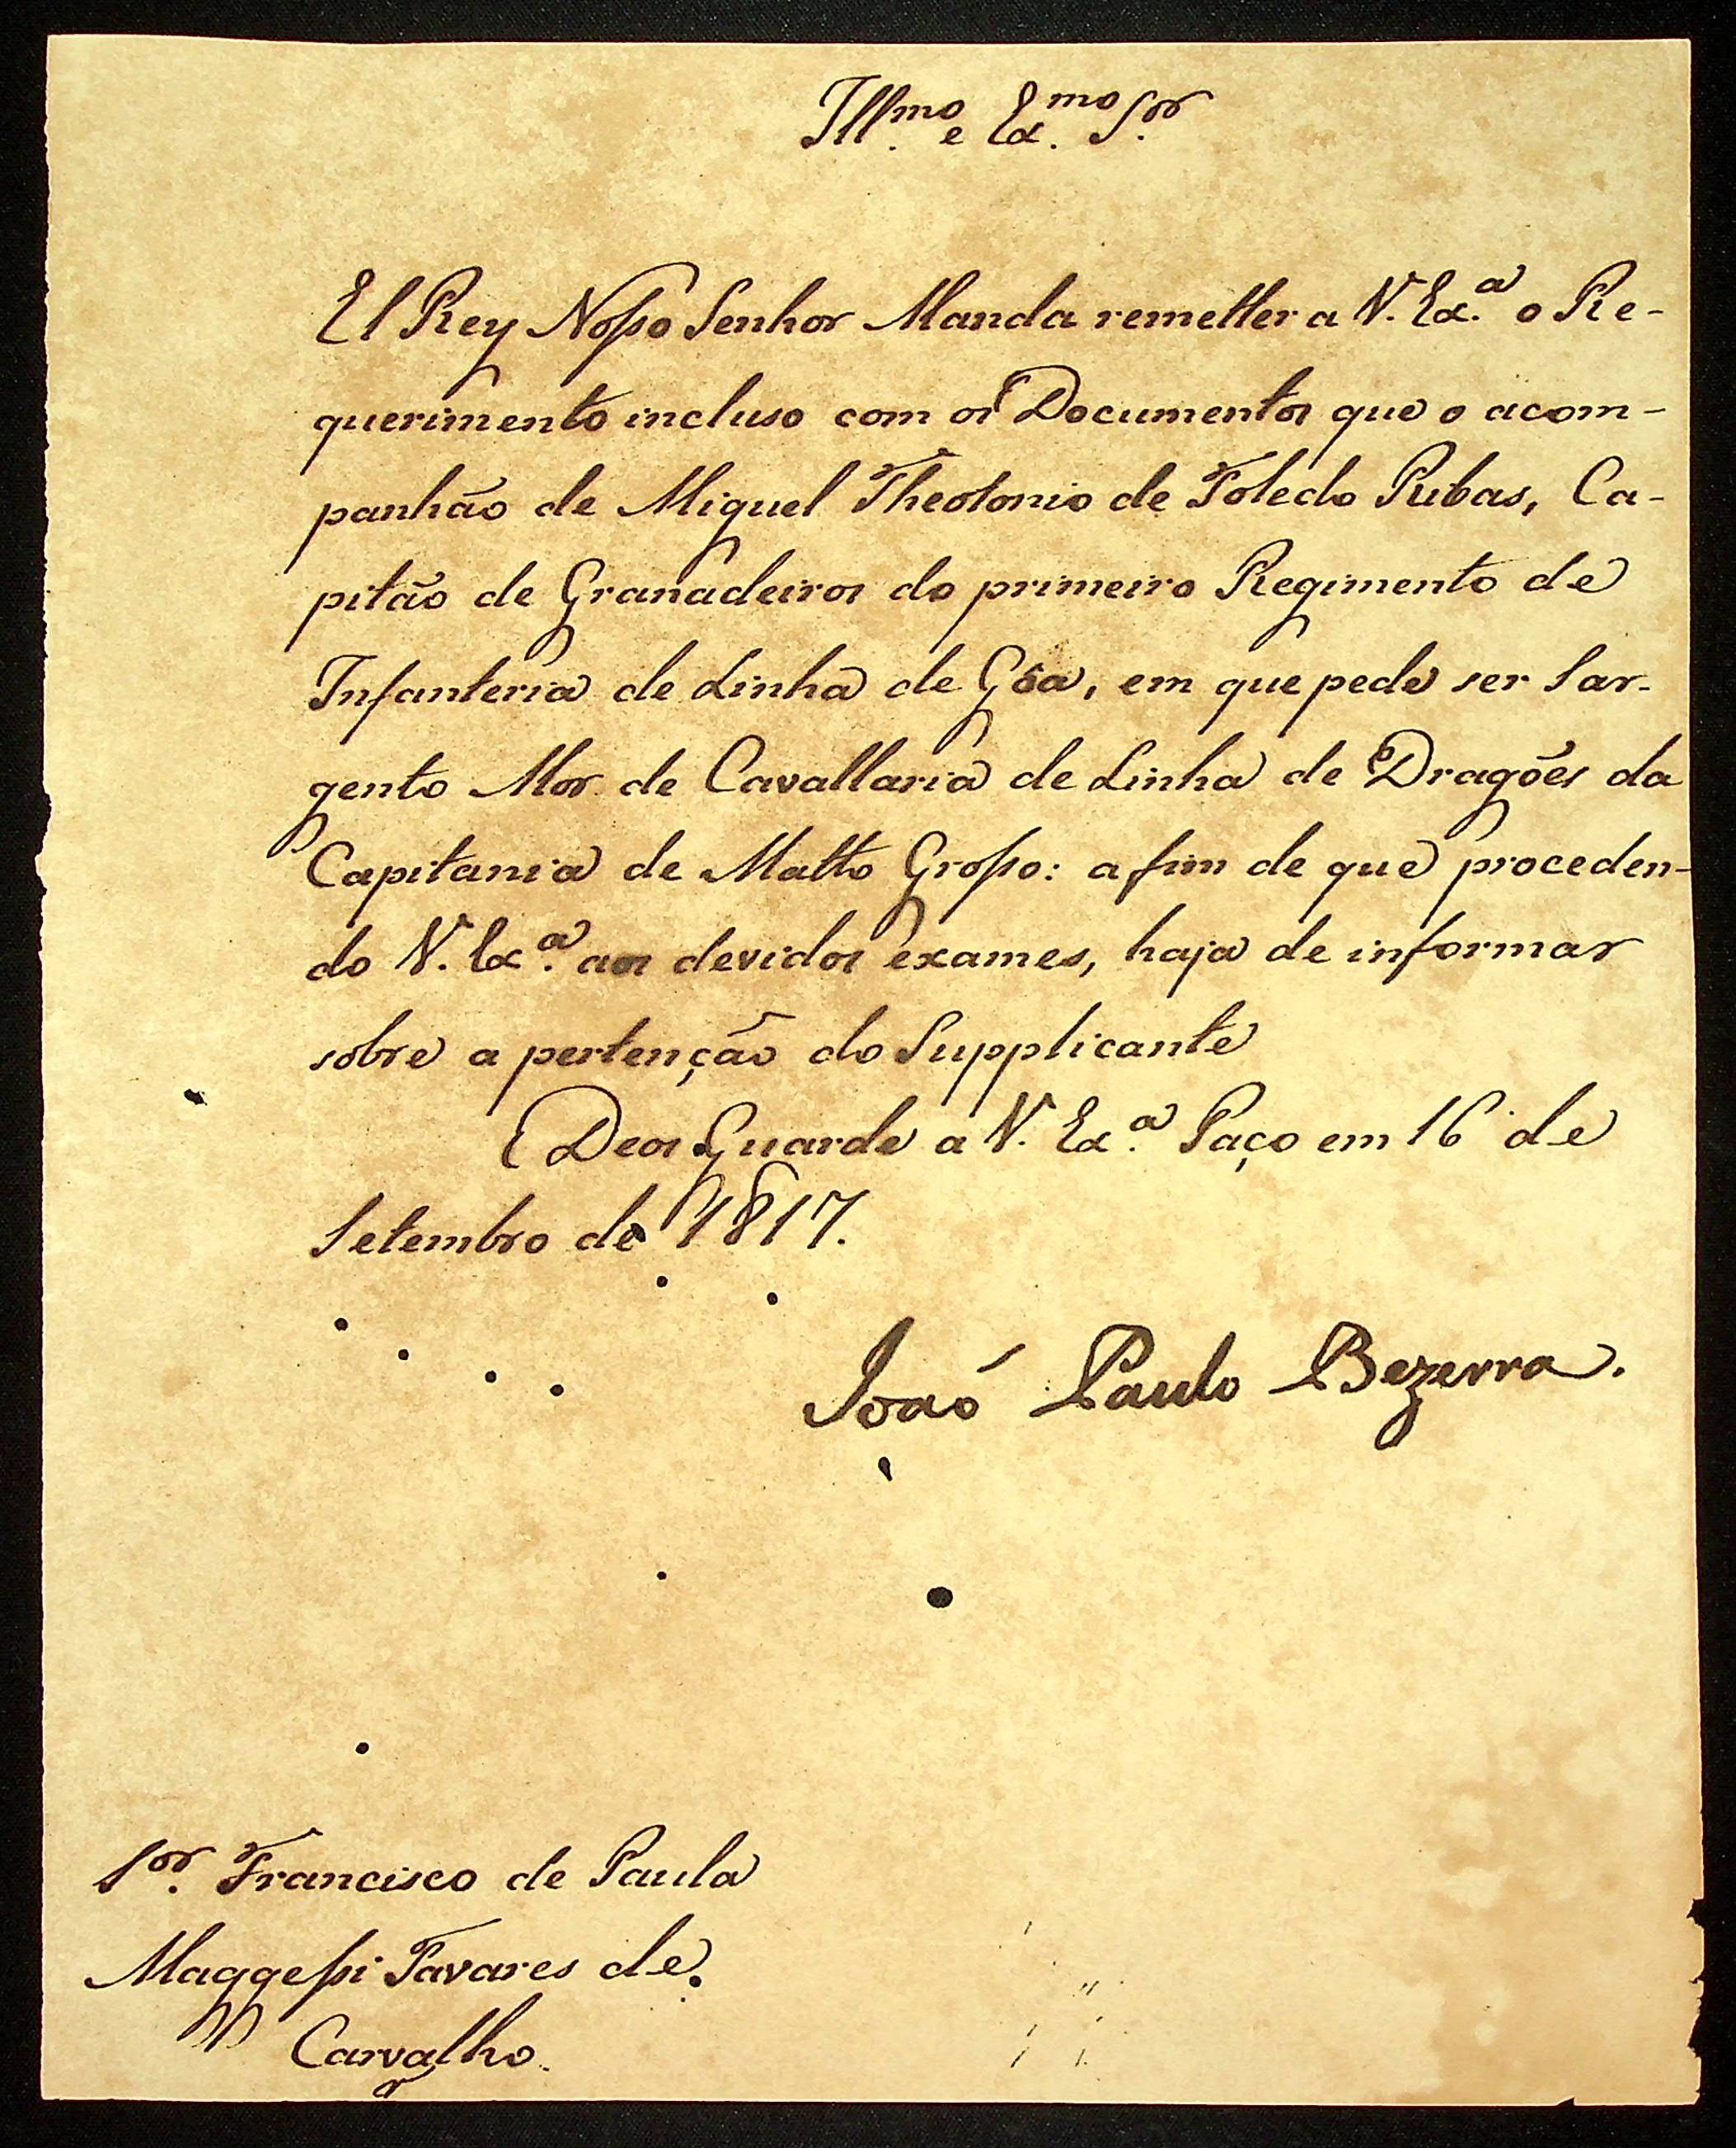 Ill.mo e Ex.mo S.or
El Rey Nosso Senhor Manda remetter a V. Ex.a o Re-
querimento incluso com os Documentos que o acom-
panhão de Miguel Theotonio de Toledo Ribas, Ca-
pitão de Granadeiros do primeiro Regimento de
Infanteria de Linha de Gôa, em que pede ser Sar-
gento Mor de Cavallaria de Linha de Dragões da
Capitania de Matto Grosso: a fim de que proceden-
do V. Ex.a aos devidos exames, haja de informar
sobre a pertenção do Supplicante
Deos Guarde a V. Ex.a Paço em 16 de
Setembro de 1817.
João Paulo Bezerra.
S.or Francisco de Paula
Maggessi Tavares de
Carvalho.